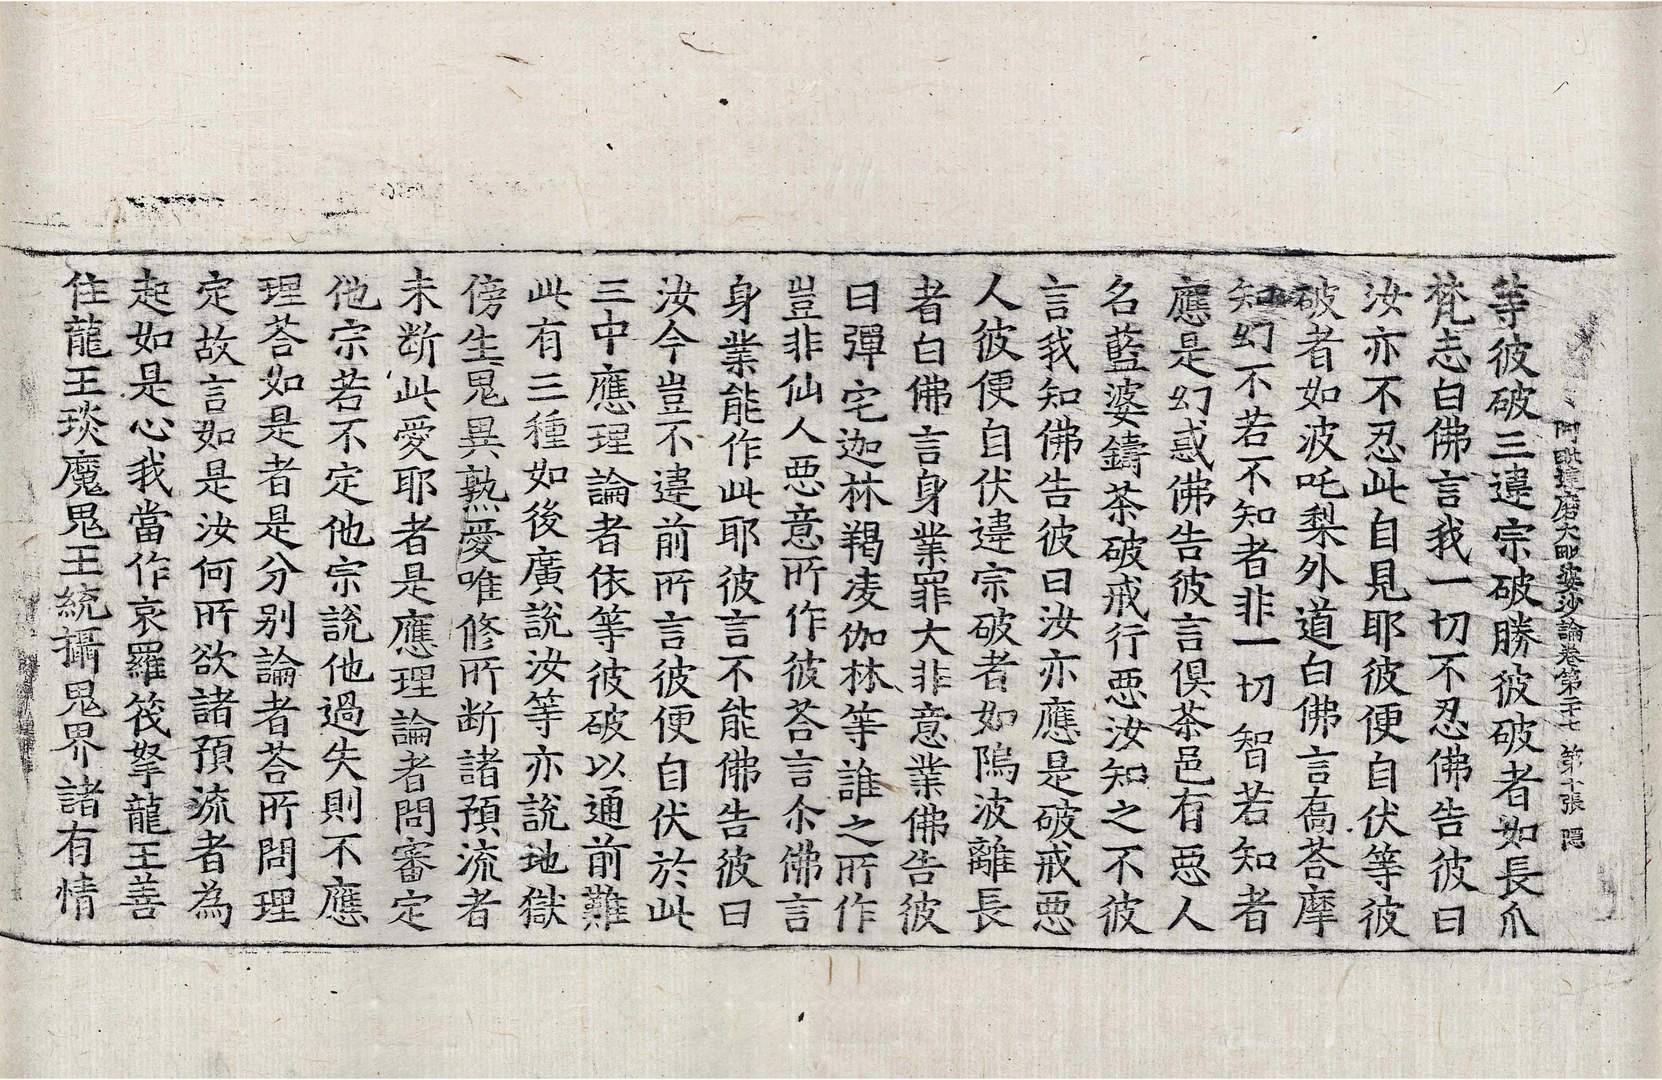 阿毗達磨大毗婆沙論卷第二十七 第十張 隱
等彼破三違宗破勝彼破者如長爪
梵志白佛言我一切不忍佛告彼曰
汝亦不忍此自見耶彼便自伏等彼
破者如波吒梨外道白佛言喬荅摩
知幻不若不知者非一切智若知者
應是幻惑佛告彼言俱荼邑有惡人
名藍婆鑄荼破戒行惡汝知之不彼
言我知佛告彼曰汝亦應是破戒惡
人彼便自伏違宗破者如鄔波離長
者白佛言身業罪大非意業佛告彼
曰彈宅迦林羯凌伽林等誰之所作
豈非仙人惡意所作彼荅言尒佛言
身業能作此耶彼言不能佛告彼曰
汝今豈不違前所言彼便自伏於此
三中應理論者依等彼破以通前難
此有三種如後廣說汝等亦說地獄
傍生鬼異熟愛唯修所断諸預流者
未断此愛耶者是應理論者問審定
他宗若不定他宗說他過失則不應
理荅如是者是分別論者荅所問理
定故言如是汝何所欲諸預流者為
起如是心我當作哀羅筏拏龍王善
住龍王琰魔鬼王統攝鬼界諸有情